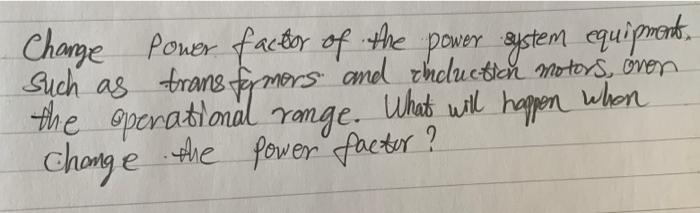 Change Power factor of the power system equipment.
Such as transformers and induction motors, over
the operational range. What will happen when
change the power factor?